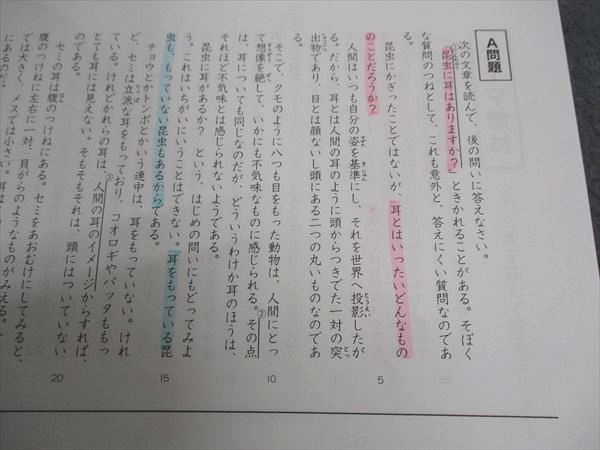 A問題
次の文章を読んで、後の問いに答えなさい。
「昆虫に耳はありますか?」ときかれることがある。そぼく
な質問のつねとして、これも意外と、答えにくい質問なのであ
る。
昆虫にかぎったことではないが、耳とはいったいどんなもの
のことだろうか?
人間はいつも自分の姿を基準にし、それを世界へ投影したが
る。だから、耳とは人間の耳のように頭からつきでた一対の突
出物であり、目とは顔ないし頭にある二つの丸いものなのであ
る。
そこで、クモのように八つも目をもった動物は、人間にとっ
て想像を絶して、いかにも不気味なものに感じられる。②その点
は、耳についても同じなのだが、どういうわけか耳のほうは、
それほど不気味とは感じられないようである。
昆虫に耳があるか? という、はじめの問いにもどってみよ
う。これはいちがいにいうことはできない。耳をもっている昆
虫も、もっていない昆虫もあるからである。
チョウとかトンボとかいう連中は、耳をもっていない。けれ
ど、セミは立派な耳をもっており、コオロギやバッタももっ
ている。けれどかれらの耳は、③人間の耳のイメージからすれば、
とても耳には見えない。そもそもそれは、頭にはついていない
のである。
セミの耳は腹のつけねにある。セミをあおむけにしてみると、
腹のつけねに左右に一対、貝がらのようなものがみえる。
では大きく、メスでは小さい。
にあるのだ。
5
10
15
20